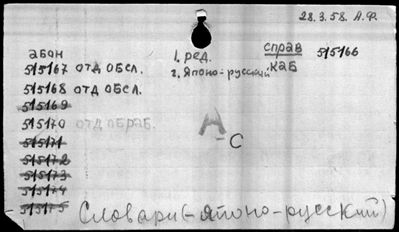 28.3.58. А.Ф.
абон
515167 отд обсл.
515168 отд обсл.
515169
515170 отд обраб.
515171
515172
515173
515174
515175
1. ред.
2. Японо-русский
справ
каб
515166
А-С
Словари (-японо-русский)